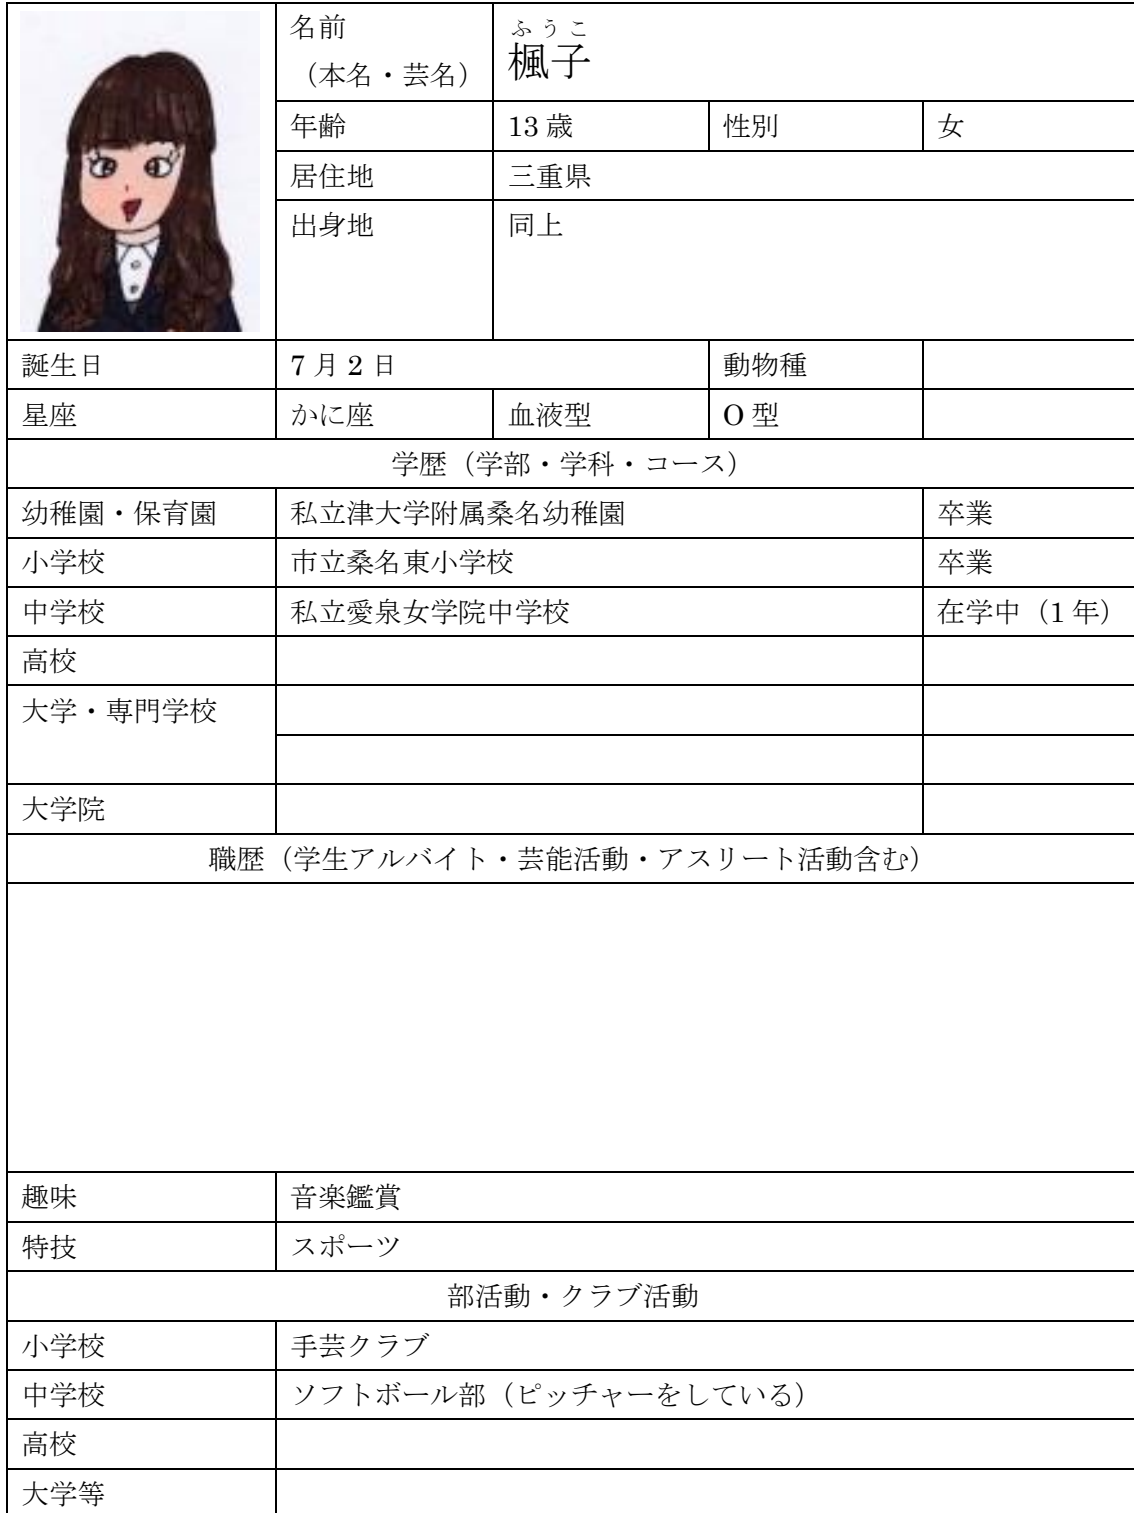 名前
（本名・芸名）
ふうこ
楓子
年齢 13 歳 性別 女
居住地 三重県
出身地 同上
誕生日 7 月 2 日 動物種
星座 かに座 血液型 O 型
学歴（学部・学科・コース）
幼稚園・保育園 私立津大学附属桑名幼稚園 卒業
小学校 市立桑名東小学校 卒業
中学校 私立愛泉女学院中学校 在学中（1 年）
高校
大学・専門学校
大学院
職歴（学生アルバイト・芸能活動・アスリート活動含む）
趣味 音楽鑑賞
特技 スポーツ
部活動・クラブ活動
小学校 手芸クラブ
中学校 ソフトボール部（ピッチャーをしている）
高校
大学等